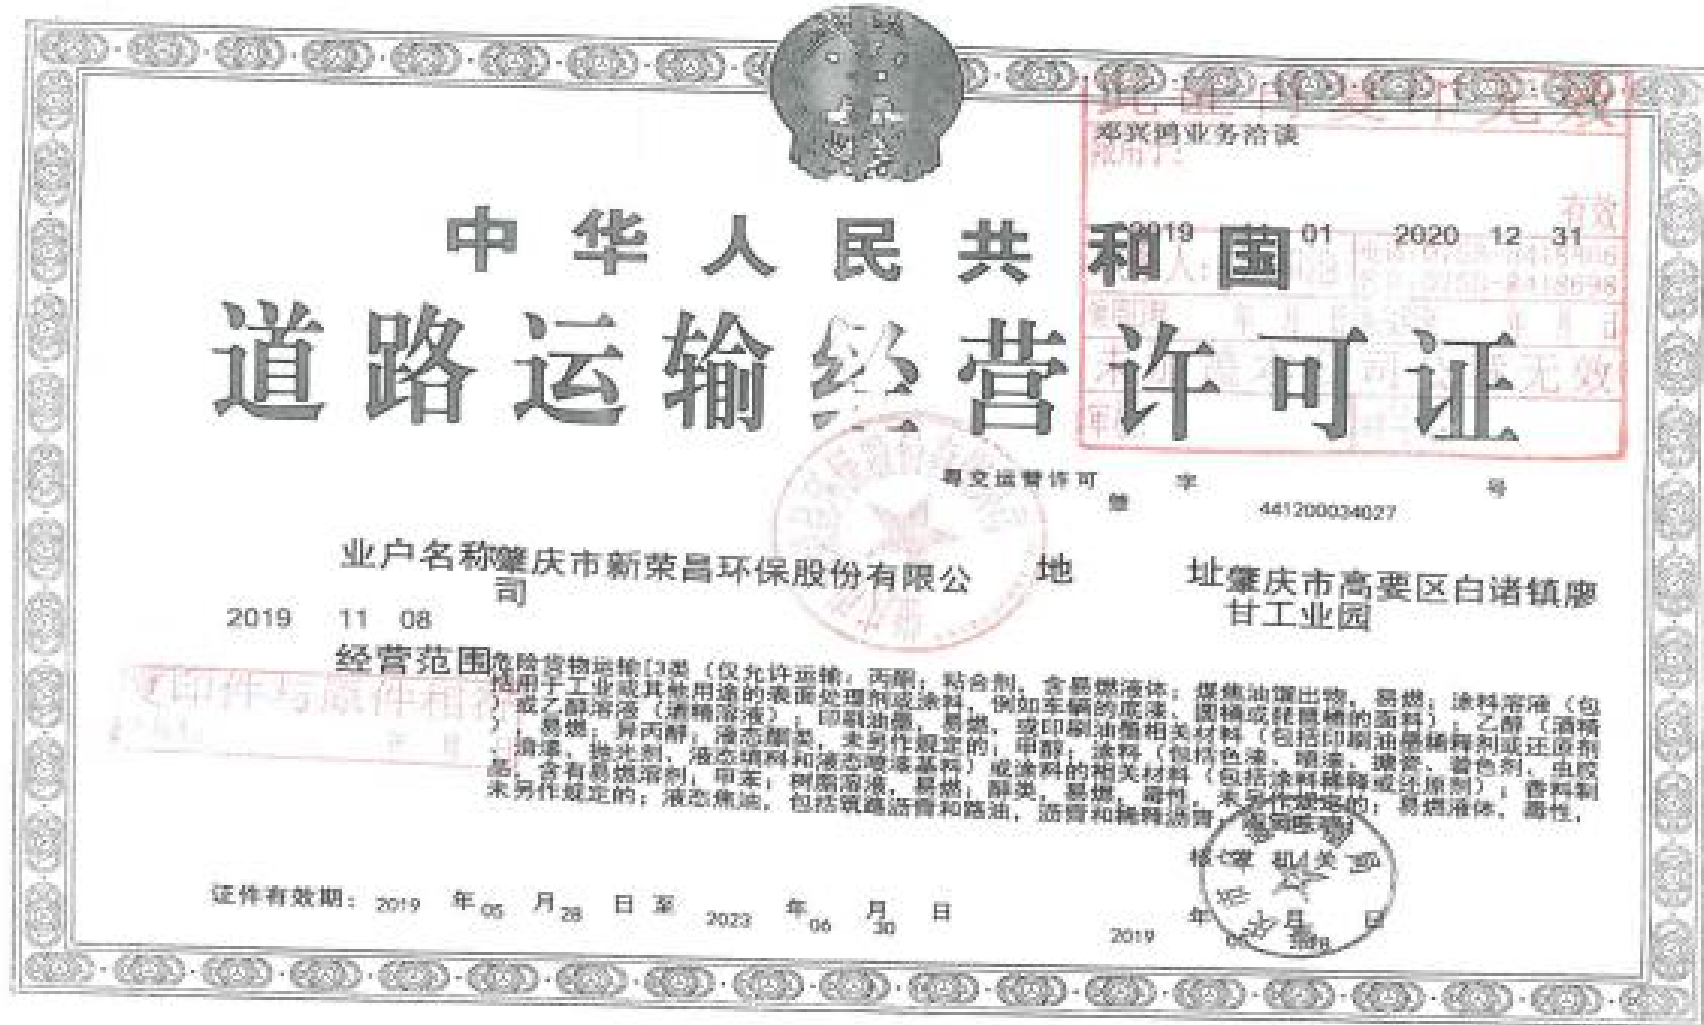 邓兴鸿业务洽谈
限用于:
有效
2019 11 01 2020 12 31
中华人民共和国
道路运输经营许可证
无效
粤交运管许可 肇 字 441200034027 号
业户名称肇庆市新荣昌环保股份有限公司
地 址肇庆市高要区白诸镇廖甘工业园
2019 11 08
复印件与原件相符
经营范围危险货物运输[3类（仅允许运输：丙酮；粘合剂，含易燃液体；煤焦油馏出物，易燃；涂料溶液（包
括用于工业或其他用途的表面处理剂或涂料，例如车辆的底漆，圆桶或琵琶桶的面料）；乙醇（酒精
）或乙醇溶液（酒精溶液）；印刷油墨，易燃，或印刷油墨相关材料（包括印刷油墨稀释剂或还原剂
），易燃；异丙醇；液态酮类，未另作规定的；甲醇；涂料（包括色漆、喷漆、搪瓷、着色剂、虫胶
、清漆、抛光剂、液态填料和液态喷漆基料）或涂料的相关材料（包括涂料稀释或还原剂）；香料制
品，含有易燃溶剂；甲苯；树脂溶液，易燃；醇类，易燃，毒性，未另作规定的；易燃液体，毒性，
未另作规定的；液态焦油，包括筑路沥青和路油，沥青和稀释沥青
核发机关
证件有效期：2019 年 05 月 28 日 至 2023 年 06 月 30 日
2019 年 月 日